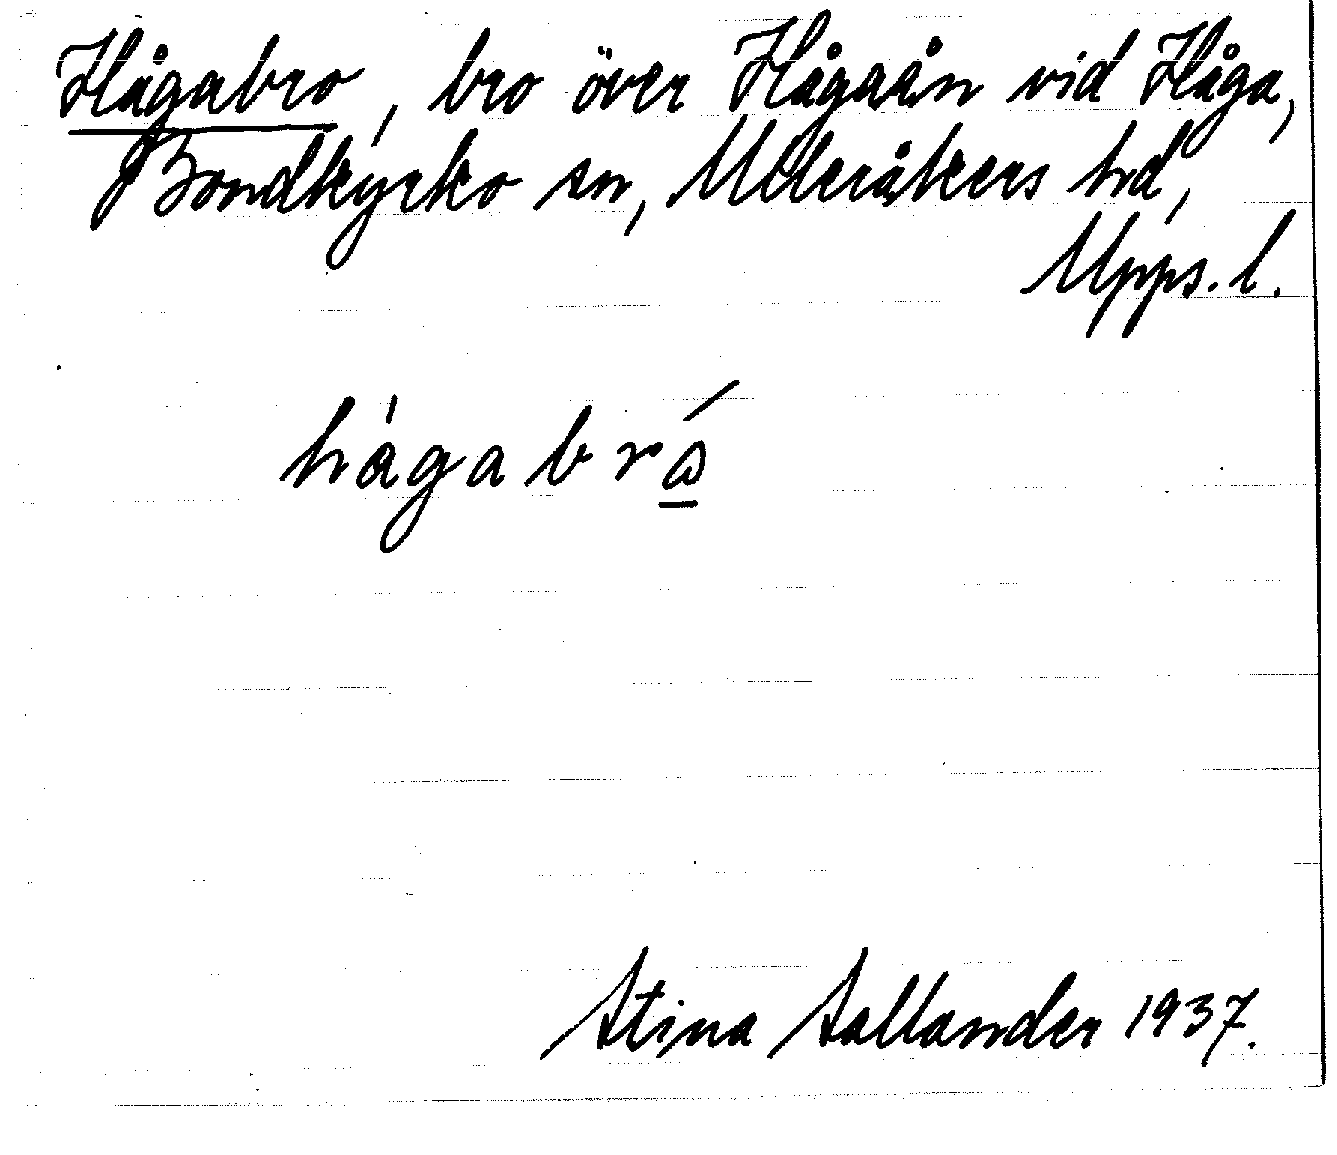 Hågabro, bro över Hågaån vid Håga,
Bondkyrko sn, Ulleråkers hd,
Upps. l.
Stina Sallander 1937.